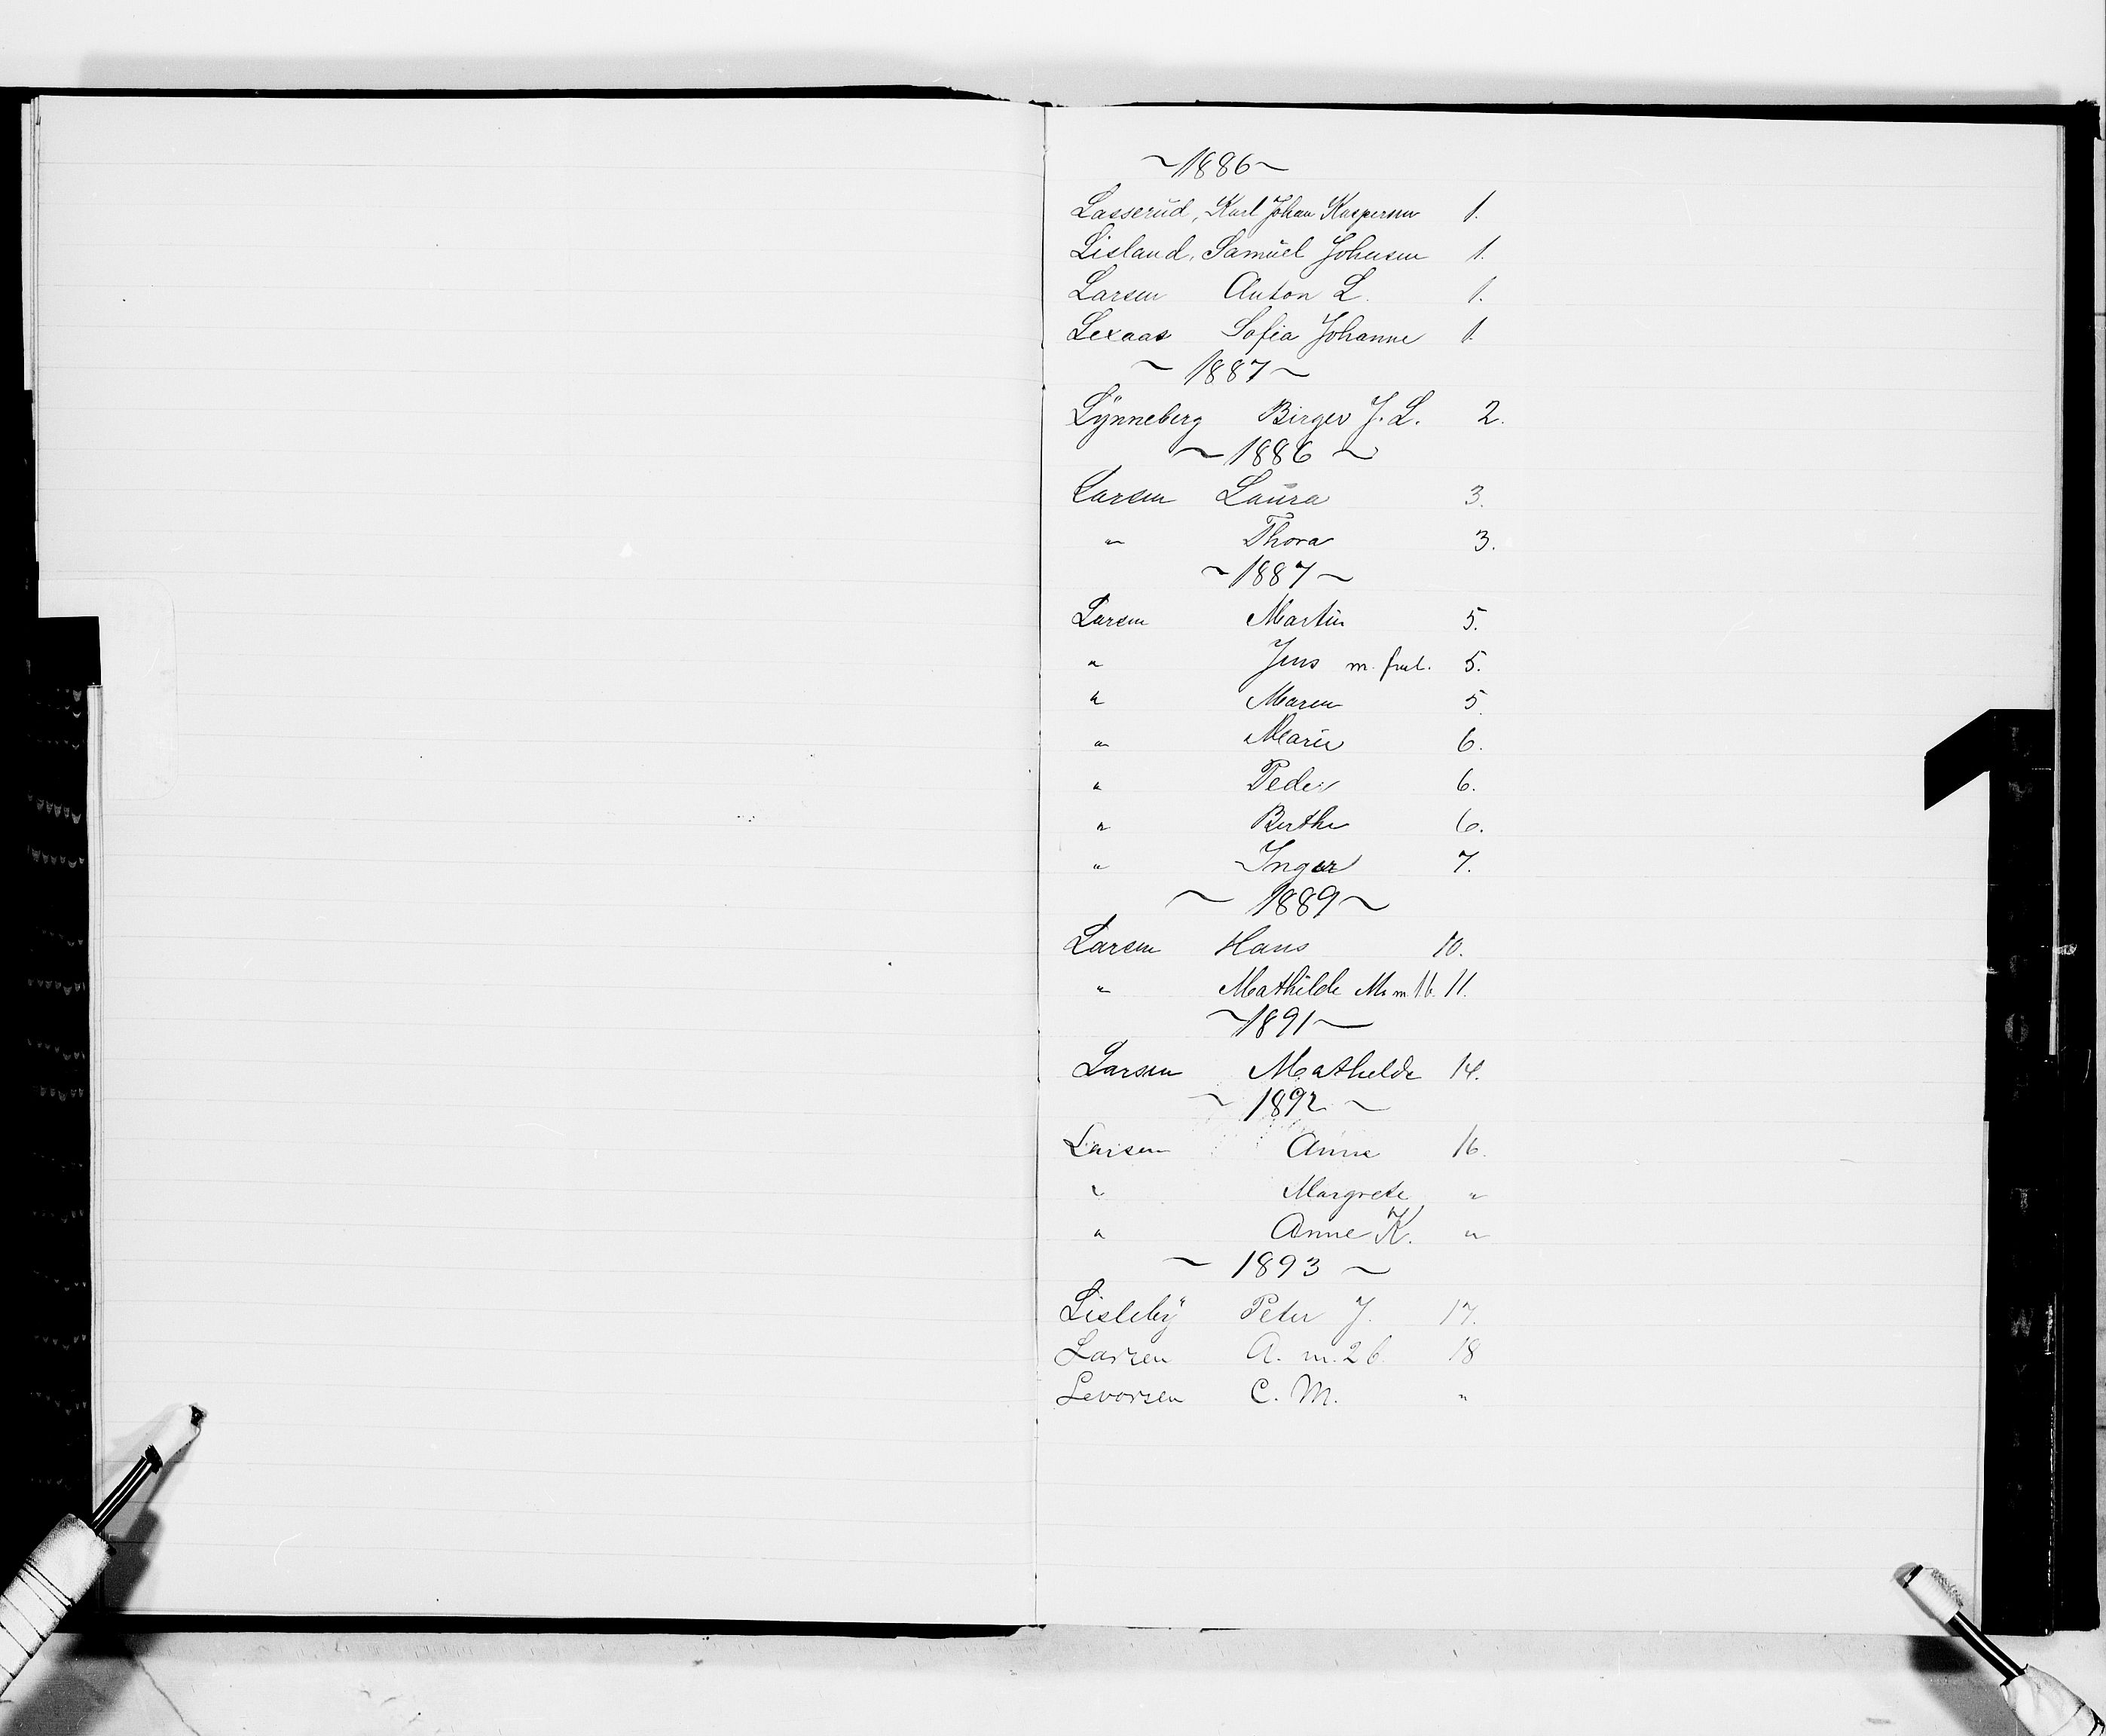 ~1886~
Lasserud, Karl Johan Kaspersen 1.
Lisland, Samuel Johnsen 1.
Larsen Anton L. 1.
Lexaas Sofia Johanne 1.
~1887~
Lynneberg Birger J. L. 2.
~1886~
Larsen Laura 3.
" Thora 3.
~1887~
Larsen Martin 5.
" Jens m. frul. 5.
" Maren 5.
" Marie 6.
" Peder 6.
" Berthe 6.
" Inger 7.
~1889~
Larsen Hans 10.
" Mathilde M. m. 16. 11.
~1891~
Larsen Mathilde 14.
~1892~
Larsen Anne 16.
" Margrete "
" Anne K. "
~1893~
Lisleby Peter J. 17.
Larsen A. m. 26. 18
Levorsen C. M. "